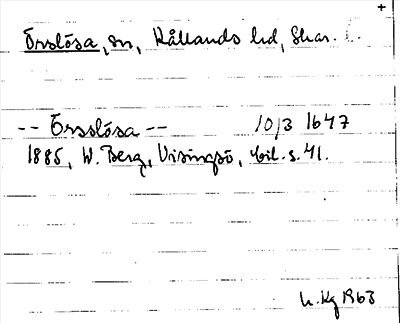 Örslösa, sn, Kållands hd, Skar.
-- Örsslösa -- 10/3 1647
1885, W. Berg, Visingsö, bil. s. 41.
L. Kg 1963